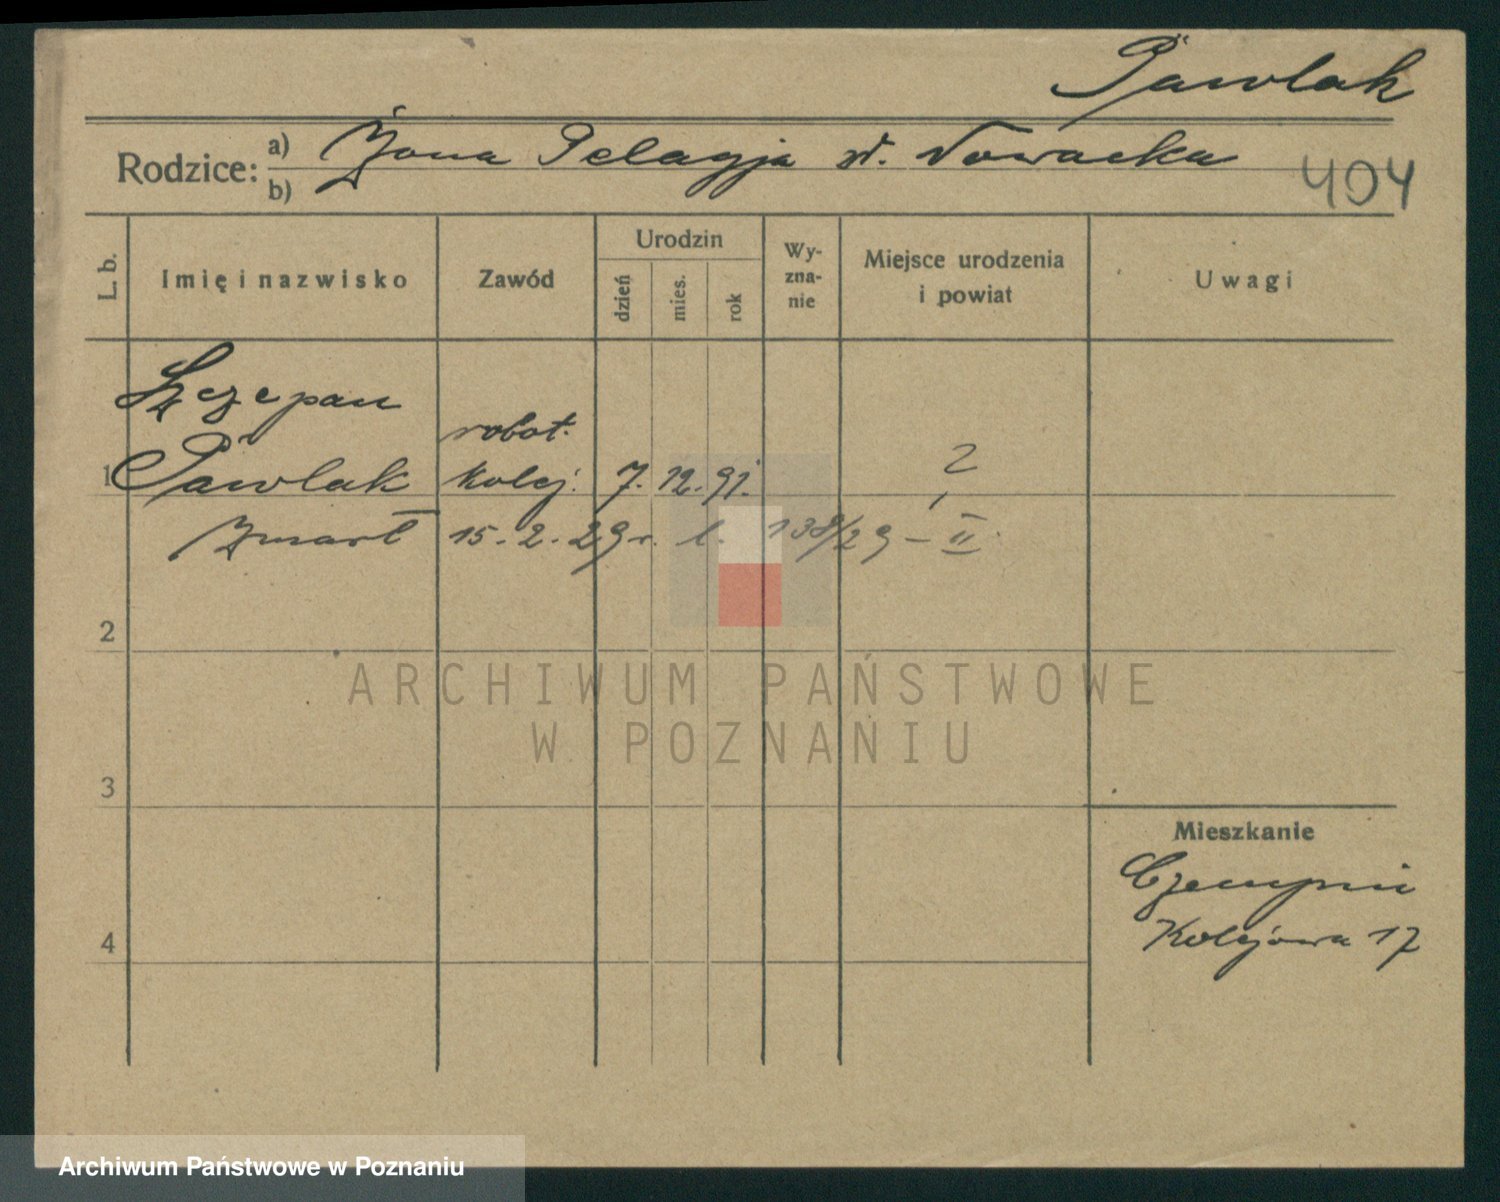 Pawlak
Rodzice:
a) Żona Pelagja
b)
Nowacka
404
L. b.
Imię i nazwisko
Zawód
Urodzin
dzień
mies.
rok
Wy-
zna-
nie
Miejsce urodzenia
i powiat
Uwagi
Szczepan
robot.
1 Pawlak kolej. 7. 12. 91. ?
Zmarł 15. 2. 29 r. l. 138/29 – II
2
3
4
Mieszkanie
Czempiń
Kolejowa 17
ARCHIWUM PAŃSTWOWE
W POZNANIU
Archiwum Państwowe w Poznaniu